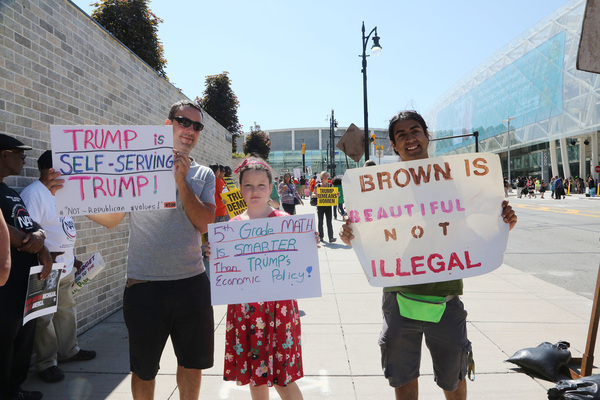 TRUMP is
SELF-SERVING
TRUMP!
"Not-Republican values!"
5th Grade MATH
is SMARTER
Than TRUMP's
Economic Policy!
BROWN IS
BEAUTIFUL
NOT
ILLEGAL
TRUMP
DEMEANS
WOMEN